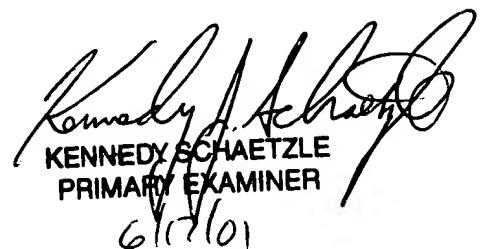 Kennedy J. Schaetzle
KENNEDY SCHAETZLE
PRIMARY EXAMINER
6/17/01